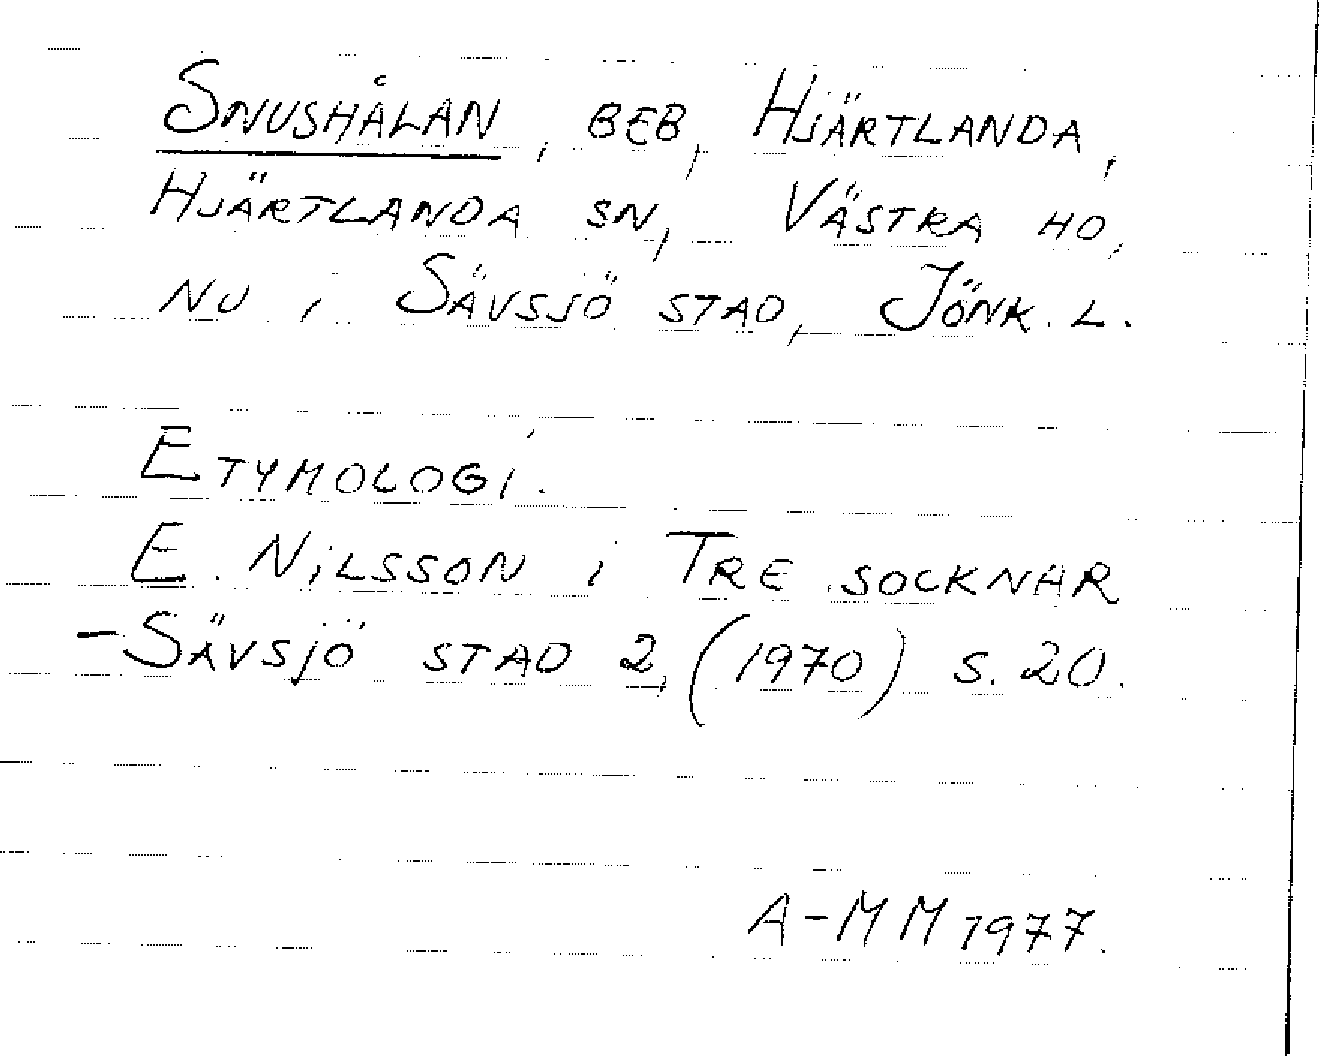 SNUSHÅLAN, BEB, HJÄRTLANDA,
HJÄRTLANDA SN, VÄSTRA HD,
NU i SÄVSJÖ STAD, JÖNK. L.
ETYMOLOGI.
E. NILSSON i TRE SOCKNAR
–SÄVSJÖ STAD 2, (1970) S. 20.
A-MM 1977.